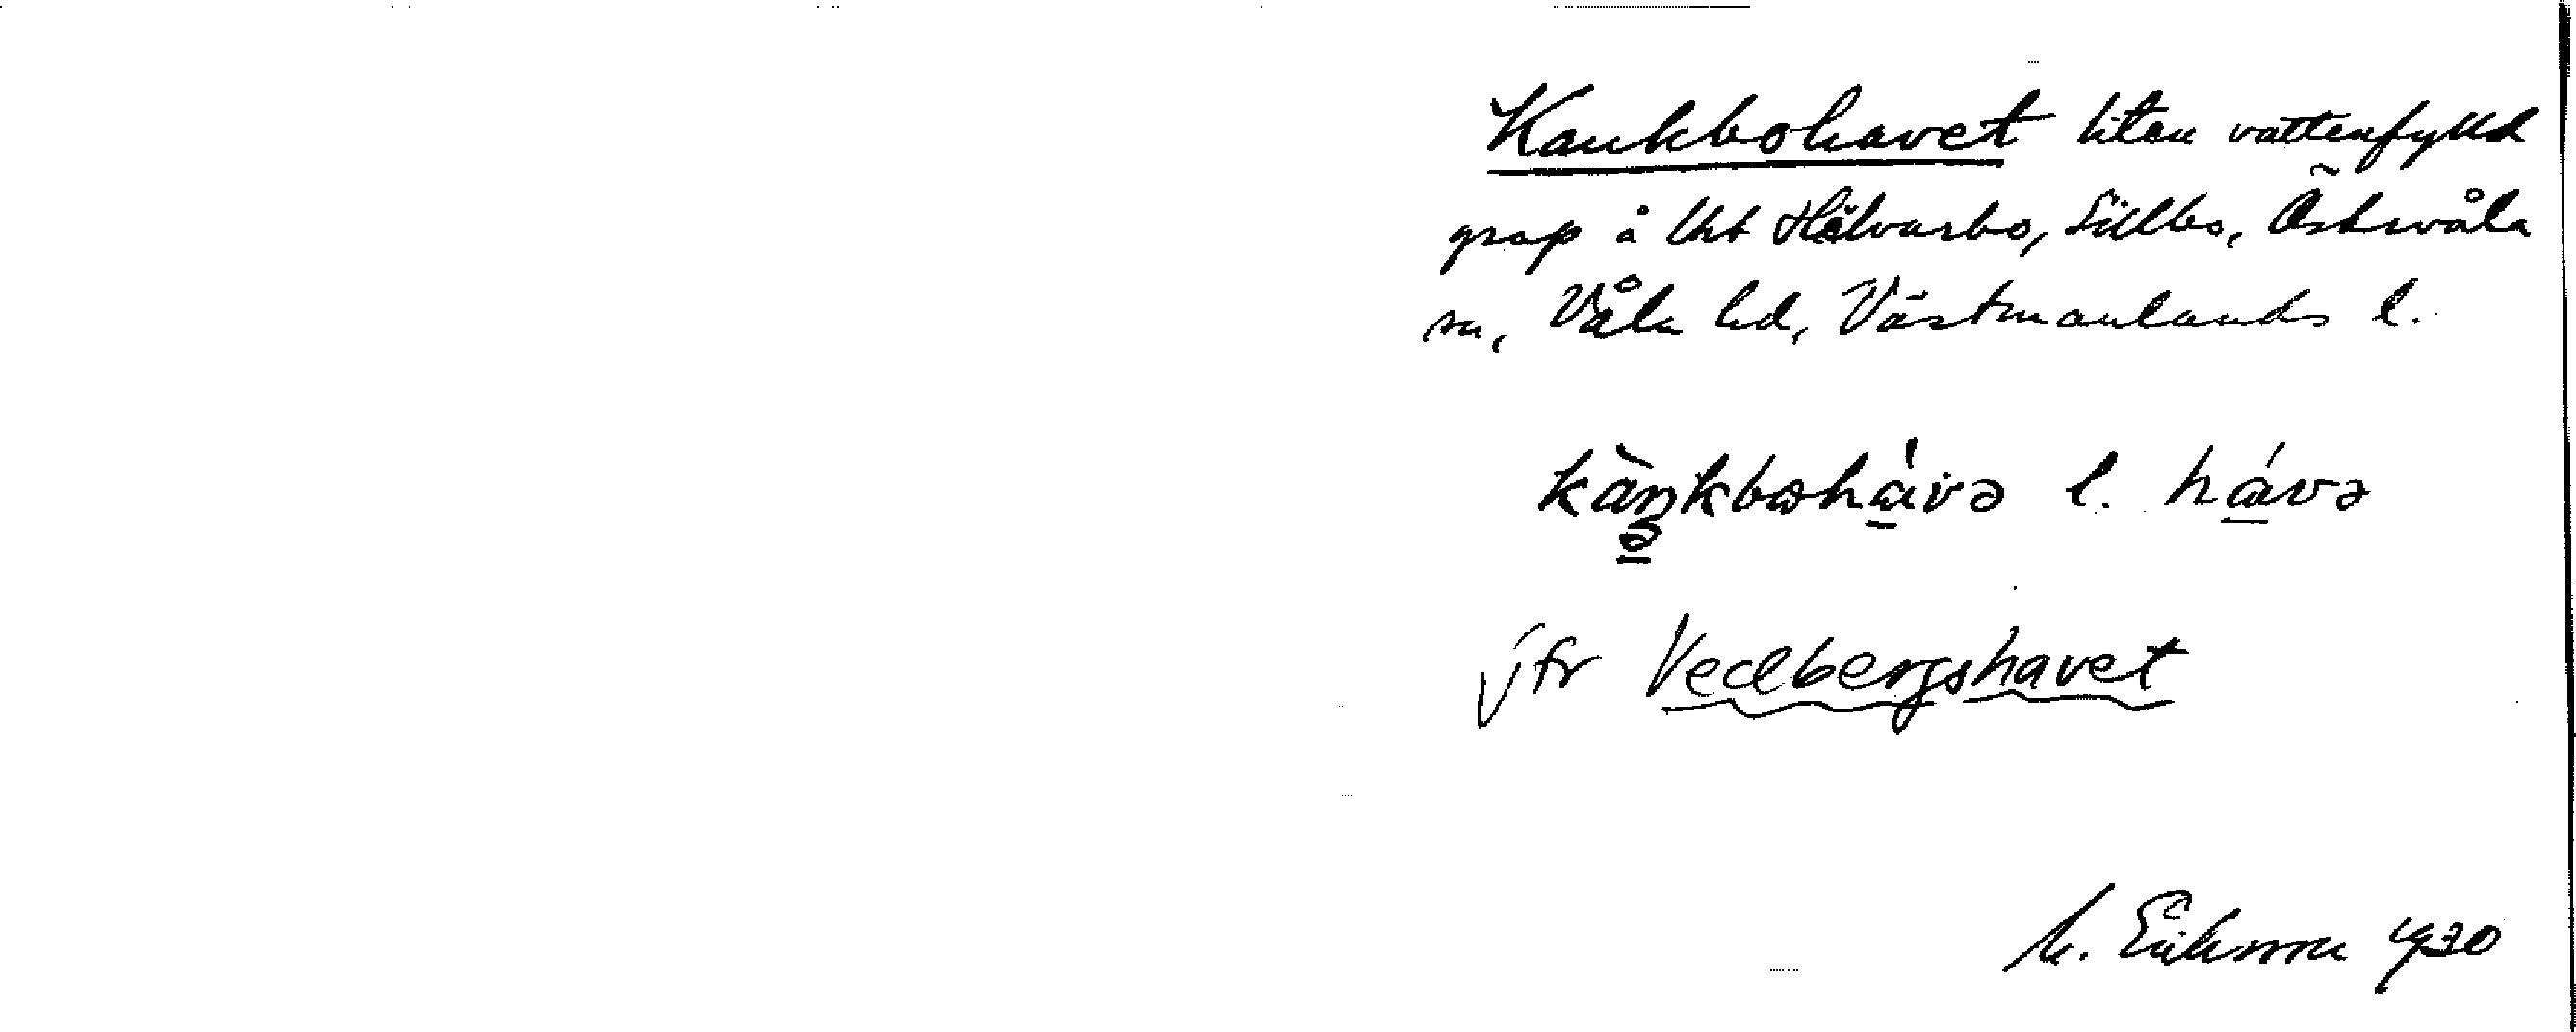 Kankbohavet liten vattenfylld
grop å Utt Hälvarbo, Sillbo, Östervåla
sn, Våla hd, Västmanlands l.
l. hávə
jfr Vedbergshavet
M. Eriksson 1930